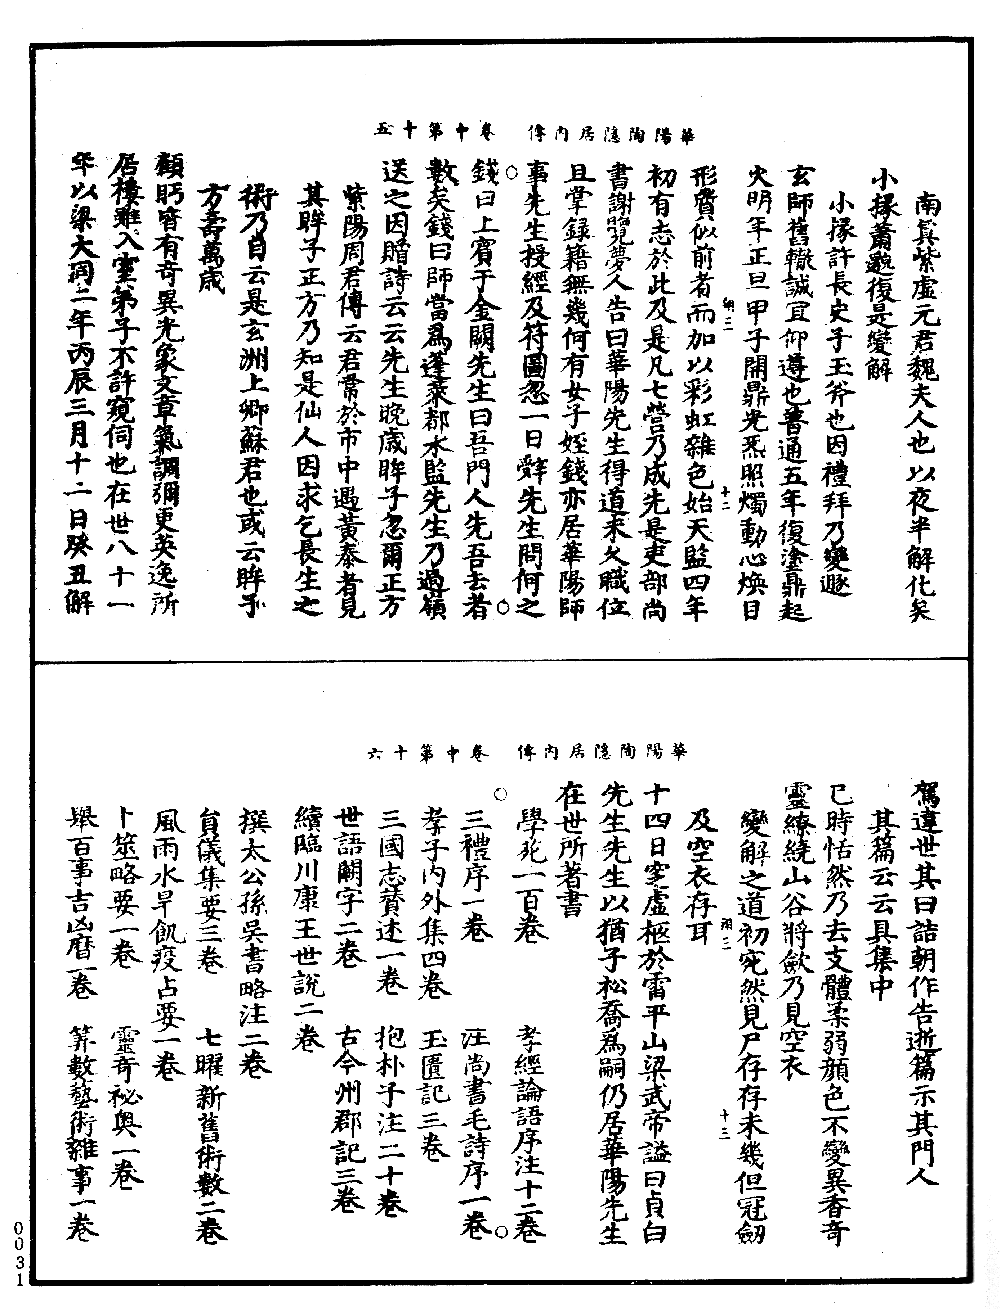 華陽陶隱居內傳　卷中第十五
南真紫虛元君魏夫人也以夜半解化矣
小掾蕭邈復是變解
小掾許長史子玉斧也因禮拜乃變遯
玄師舊轍誠宜仰遵也普通五年復塗鼎起
火明年正旦甲子開鼎光炁照燭動心煥目
形貲似前者而加以彩虹雜色始天監四年
翔三
十二
初有志於此及是凡七營乃成先是吏部尚
書謝覽夢人告曰華陽先生得道來久職位
且掌錄籍無幾何有女子姪錢亦居華陽師
事先生授經及符圖忽一日辭先生問何之
錢曰上賓于金闕先生曰吾門人先吾去者
數矣錢曰師當爲蓬萊都水監先生乃過嶺
送之因贈詩云云先生晚歲眸子忽爾正方
紫陽周君傳云君常於市中遇黃泰者見
其眸子正方乃知是仙人因求乞長生之
術乃自云是玄洲上卿蘇君也或云眸子
方壽萬歲
顧眄皆有奇異光象文章氣調彌更英逸所
居樓雖入室弟子不許窺伺也在世八十一
年以梁大同二年丙辰三月十二日癸丑解
華陽陶隱居內傳　卷中第十六
駕違世其日詰朝作告逝篇示其門人
其篇云云具集中
巳時恬然乃去支體柔弱顏色不變異香奇
靈繚繞山谷將斂乃見空衣
變解之道初宛然見尸存存未幾但冠劒
翔三
十三
及空衣存耳
十四日窆虛柩於雷平山梁武帝謚曰貞白
先生先生以猶子松喬爲嗣仍居華陽先生
在世所著書
學苑一百卷　孝經論語序注十二卷
三禮序一卷　注尚書毛詩序一卷
孝子內外集四卷　玉匱記三卷
三國志贊述一卷　抱朴子注二十卷
世語闕字二卷　古今州郡記三卷
續臨川康王世說二卷
撰太公孫吳書略注二卷
員儀集要三卷　七曜新舊術數二卷
風雨水旱飢疫占要一卷
卜筮略要一卷　靈奇祕奧一卷
舉百事吉凶曆一卷　算數藝術雜事一卷
0031